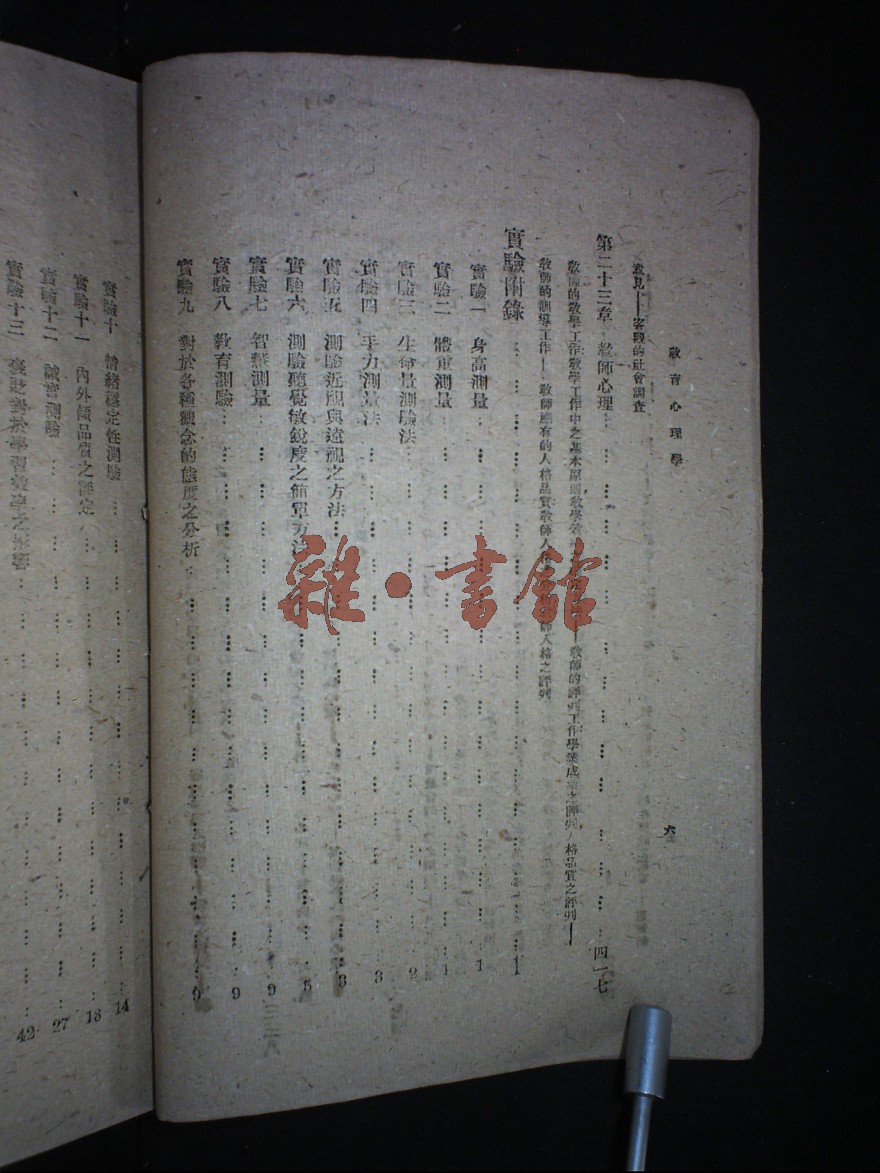 教育心理學
六
意見——客觀的社會調查
第二十三章 教師心理………………………四一七
教師的教學工作教學工作中之基本原則教學——教師的評判工作學業成之評判人格品質之評判——
教師的訓導工作——教師應有的人格品質教師人師人格之評判
實驗附錄………………………1
實驗一 身高測量………………………1
實驗二 體重測量………………………1
實驗三 生命量測驗法………………………2
實驗四 手力測量法………………………3
實驗五 測驗近視與遠視之方法………………………3
實驗六 測驗聽覺敏銳度之簡單方法………………………5
實驗七 智慧測量………………………9
實驗八 教育測驗………………………9
實驗九 對於各種觀念的態度之分析………………………9
實驗十 情緒穩定性測驗………………………14
實驗十一 內外傾品質之評定………………………18
實驗十二 誠實測驗………………………27
實驗十三 對於學習效率之………………………42
雜·書館